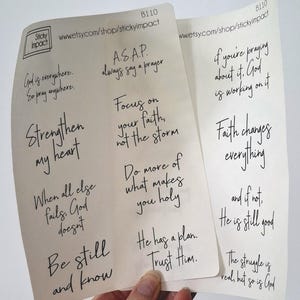 Sticky
Impact
B110
www.etsy.com/shop/stickyimpact
God is everywhere.
So pray anywhere.
A.S.A.P.
always say a prayer
Strengthen
my heart
Focus on
your faith,
not the storm
When all else
fails, God
doesn't
Do more of
what makes
you holy
Be still
and know
He has a plan.
Trust Him.
B110
www.etsy.com/shop/stickyimpact
if you're praying
about it, God
is working on it
Faith changes
everything
and if not,
He is still good
The struggle is
real, but so is God